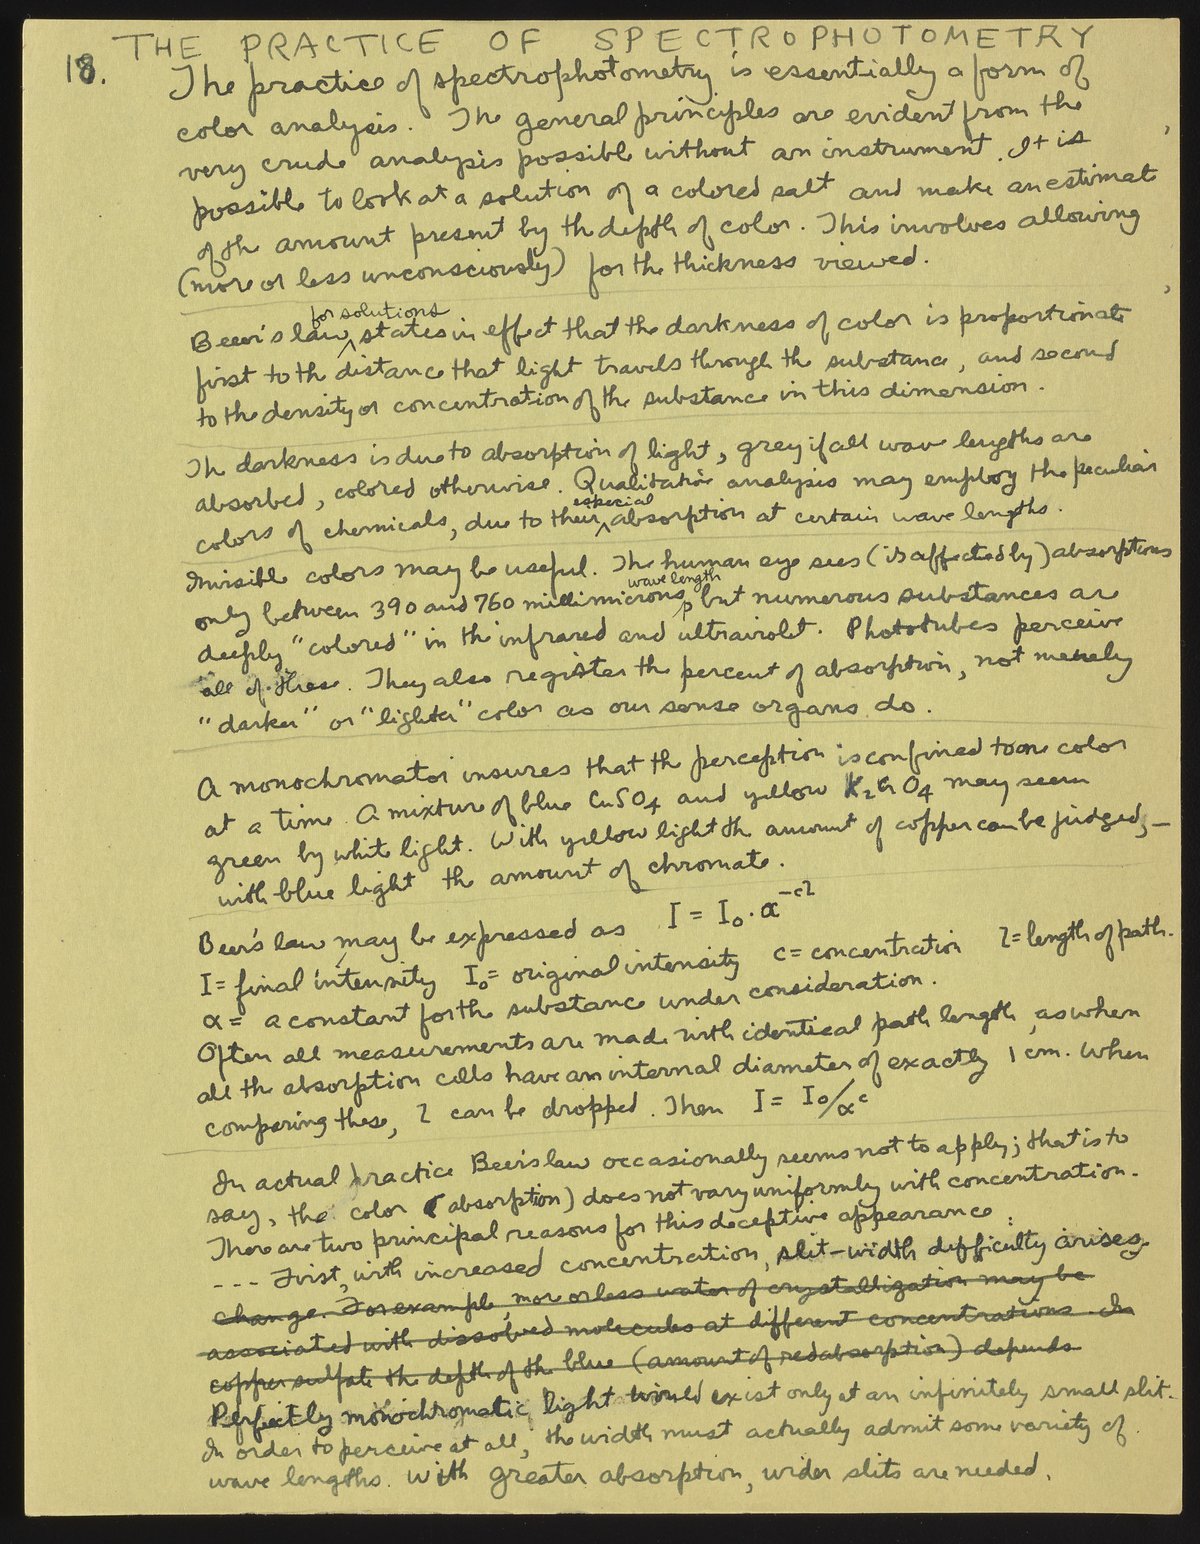 18. THE PRACTICE OF SPECTROPHOTOMETRY
The practice of spectrophotometry is essentially a form of
color analysis. The general principles are evident from the
very crude analysis possible without an instrument. It is
possible to look at a solution of a colored salt and make an estimate
of the amount present by the depth of color. This involves allowing
(more or less unconsciously) for the thickness viewed.
for solutions
Beer's law ^ states in effect that the darkness of color is proportionate
first to the distance that light travels through the substance, and second
to the density or concentration of the substance in this dimension.
The darkness is due to absorption of light, grey if all wave lengths are
absorbed, colored otherwise. Qualitative analysis may employ the peculiar
especial
colors of chemicals, due to their ^ absorption at certain wave lengths.
Invisible colors may be useful. The human eye sees (is affected by) absorptions
wave length
only between 390 and 760 millimicrons, but numerous substances are
deeply "colored" in the infrared and ultraviolet. Phototubes perceive
all of these. They also register the percent of absorption, not merely
"darker" or "lighter" color as our sense organs do.
A monochromator insures that the perception is confined to one color
at a time. A mixture of blue CuSO4 and yellow K2CrO4 may seem
green by white light. With yellow light the amount of copper can be judged,—
with blue light the amount of chromate.
Beer's law may be expressed as I = I₀·α^-cl
I = final intensity I₀ = original intensity c = concentration l = length of path.
α = a constant for the substance under consideration.
Often all measurements are made with identical path length, as when
all the absorption cells have an internal diameter of exactly 1 cm. When
comparing these, l can be dropped. Then I = I₀/α^c
In actual practice Beer's law occasionally seems not to apply; that is to
say, the color (absorption) does not vary uniformly with concentration.
There are two principal reasons for this deceptive appearance:
--- First, with increased concentration, slit-width difficulty arises.
change. For example, more or less water of crystallization may be
associated with dissolved molecules at different concentrations. In
copper sulfate the depth of the blue (amount of red absorption) depends
Perfectly monochromatic light would exist only at an infinitely small slit.
In order to perceive at all, the width must actually admit some variety of
wave lengths. With greater absorption, wider slits are needed.